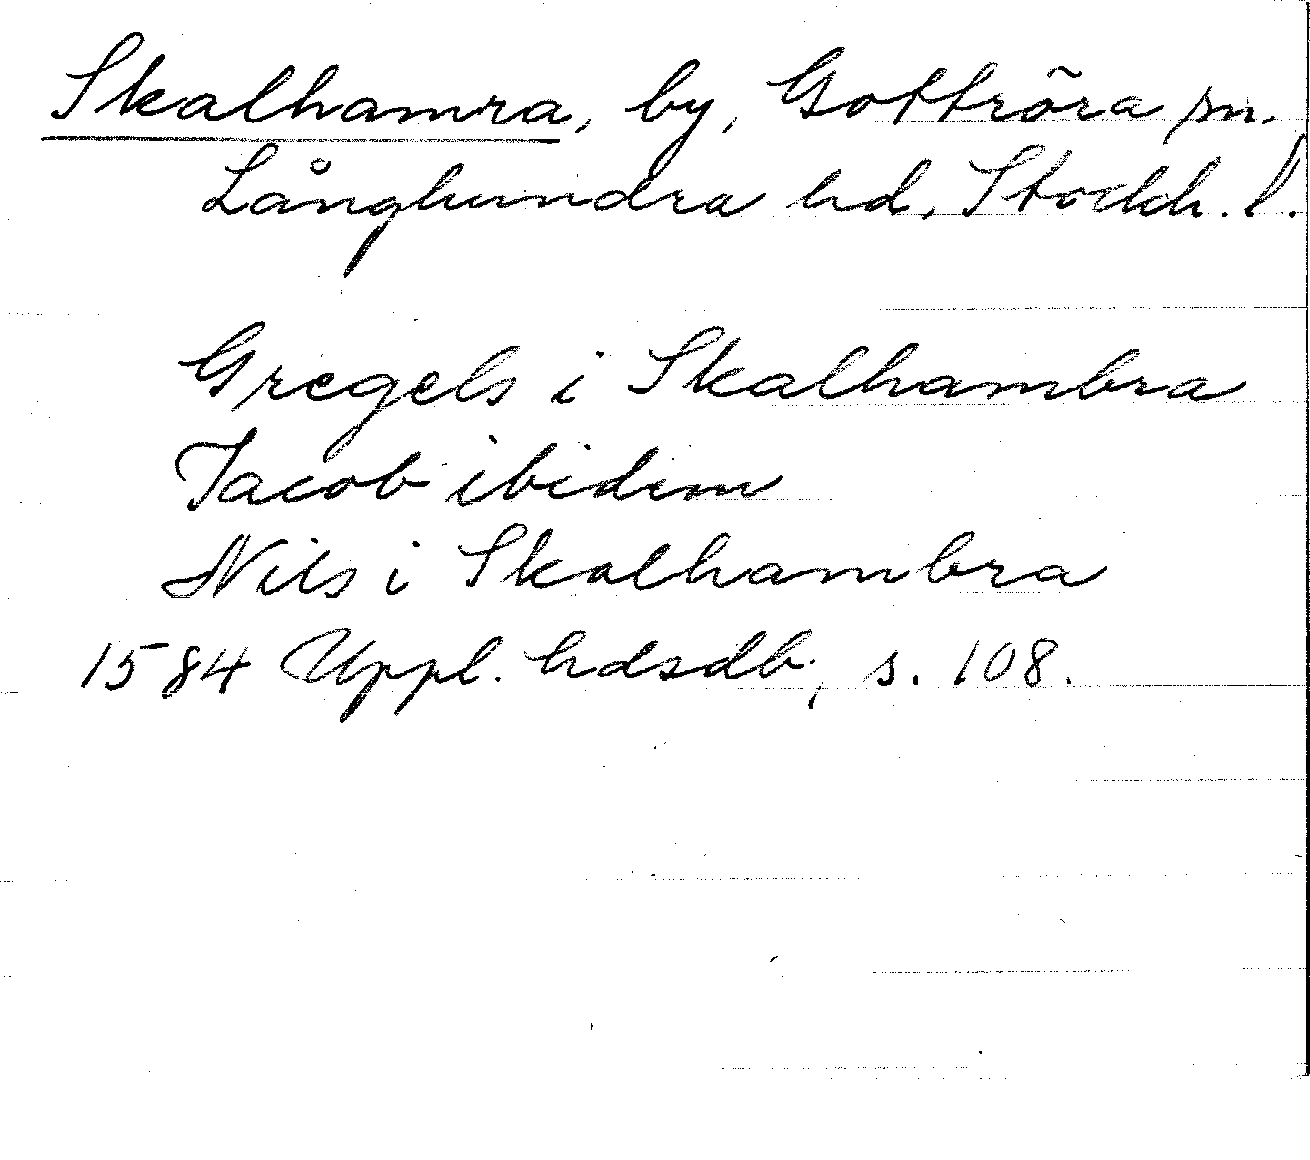 Skalhamra, by, Gottröra sn.
Långhundra hd, Stockh. l.
Gregels i Skalhambra
Jacob ibidem
Nils i Skalhambra
1584 Uppl. hdsdb, s. 108.